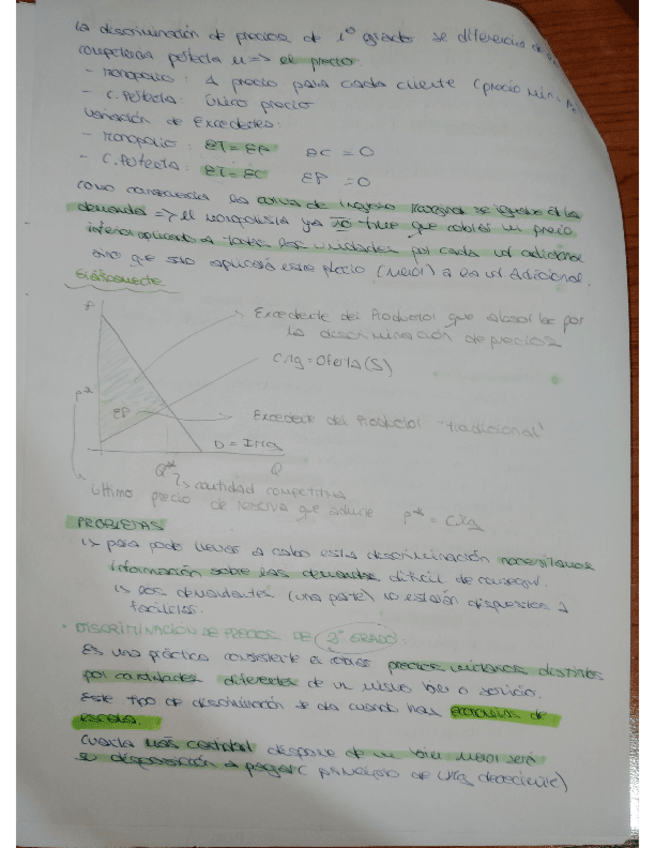 La discriminación de precios de 1º grado se diferencia de la
competencia perfecta en => el precio.
- Monopolio: 1 precio para cada cliente (precio
- C. Perfecta: Único precio
Variación de Excedentes:
- Monopolio: ET = EP EC = 0
- C. Perfecta: ET = EC EP = 0
Como consecuencia la curva de ingreso marginal se iguala a la
demanda => el monopolista ya NO tiene que cobrar un precio
inferior aplicado a todas las unidades por cada ud adicional
sino que solo aplicará este precio (menor) a la ud Adicional.
Gráficamente
P
Excedente del Productor que absorbe por
la discriminación de precios
CMg = Oferta (S)
P*
EP
Excedente del Productor "tradicional"
D = IMg
Q* Q
↳ cantidad competitiva
último precio de reserva que P* = CMg
PROBLEMAS
↳ para poder llevar a cabo esta discriminación necesitamos
información sobre las demandas difícil de conseguir.
↳ Los demandantes (una parte) no estarán dispuestos a
facilitar.
· DISCRIMINACIÓN DE PRECIOS DE (2º GRADO):
Es una práctica consistente a precios unitarios distintos
por cantidades diferentes de un mismo bien o servicio.
Este tipo de discriminación se da cuando hay economías de
escala.
Cuanta más cantidad dispone de un bien menor será
su disposición a pagar (principio de UMg decreciente)